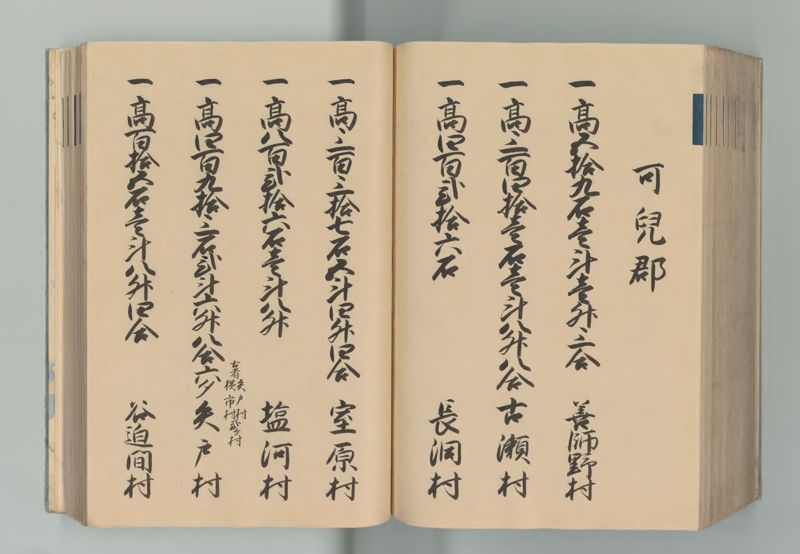 可兒郡
一高五拾九石壱斗壱升三合 善師野村
一高三百四拾壱石壱斗八升八合 古瀬村
一高四百弐拾六石 長洞村
一高三百三拾七石五斗四升四合 室原村
一高八百弐拾六石壱斗八升 塩河村
一高四百九拾三石弐斗六升八合六夕 矢戸村
古者矢戸村
横市村弐ケ村
一高百拾五石壱斗八升四合 谷迫間村